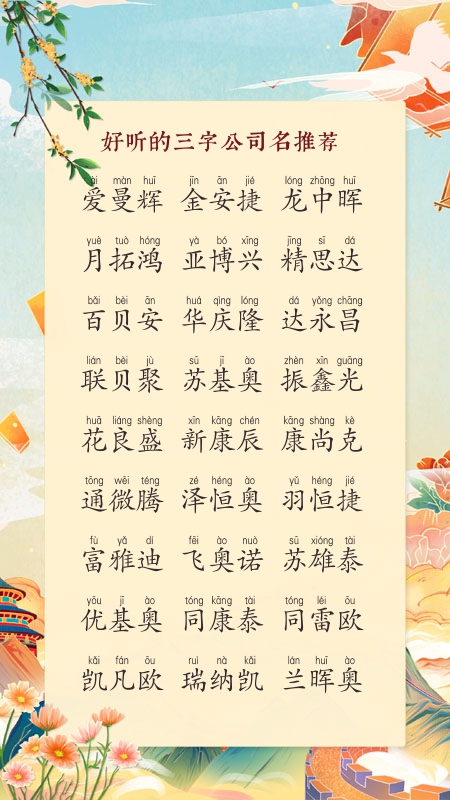 好听的三字公司名推荐
ài màn huī jīn ān jié lóng zhōng huī
爱曼辉 金安捷 龙中晖
yuè tuò hóng yà bó xīng jīng sī dá
月拓鸿 亚博兴 精思达
bǎi bèi ān huá qìng lóng dá yǒng chāng
百贝安 华庆隆 达永昌
lián bèi jù sū jī ào zhèn xīn guāng
联贝聚 苏基奥 振鑫光
huā liáng shèng xīn kāng chén kāng shàng kè
花良盛 新康辰 康尚克
tōng wēi téng zé héng ào yǔ héng jié
通微腾 泽恒奥 羽恒捷
fù yǎ dí fēi ào nuò sū xióng tài
富雅迪 飞奥诺 苏雄泰
yōu jī ào tóng kāng tài tóng léi ōu
优基奥 同康泰 同雷欧
kǎi fán ōu ruì nà kǎi lán huī ào
凯凡欧 瑞纳凯 兰晖奥